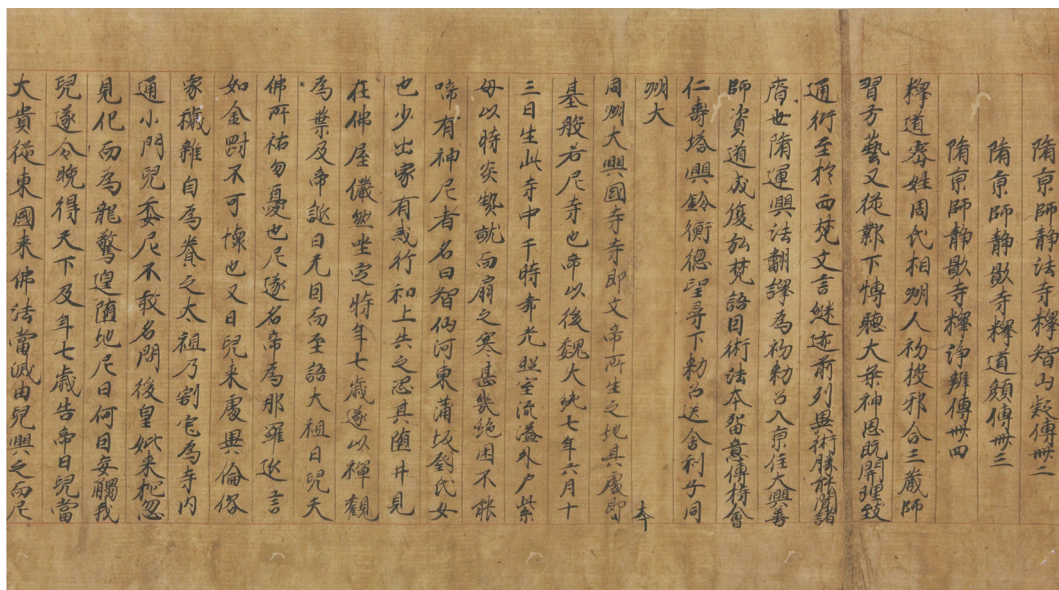 隋京師静法寺釋智嶷傳卌二
隋京師静歐寺釋道顔傳卌三
隋京師静歐寺釋浄辯傳卌四
釋道宻姓周氏相州人初投邪舍三蔵師
習方藝又従鄴下博聽大乗神思既開理致
通術至於西梵文言継迹前列異術勝能聞諸
齊世隋運興法翻譯為初勅召入京住大興善
師資道成復弘梵語因術法本留意傳持會
仁壽塔興銓衡徳望尋下勅召送舍利于同
州大
同州大興國寺寺即文帝所生之地其處即
基般若尼寺也帝以後魏大統七年六月十
三日生此寺中于時赤光照室流溢外户紫
母以時炎熱就而扇之寒甚幾絶困不能
啼有神尼者名曰智仙河東蒲坂劉氏女
也少出家有戒行和上失之恐其堕井見
在佛屋儼然坐定時年七歳遂以禪觀
為業及帝誕日无因而至語太祖曰兒天
佛所祐勿憂也尼遂名帝為那羅延言
如金罸不可懐也又曰兒来處異倫俗
家穢雜自為養之太祖乃割宅為寺内
通小門兒委尼不敢名問後皇妣来抱忽
見化而為龍驚遑堕地尼曰何因妄觸我
兒遂令晩得天下及年七歳告帝曰兒當
大貴従東國来佛法當滅由兒興之而尼